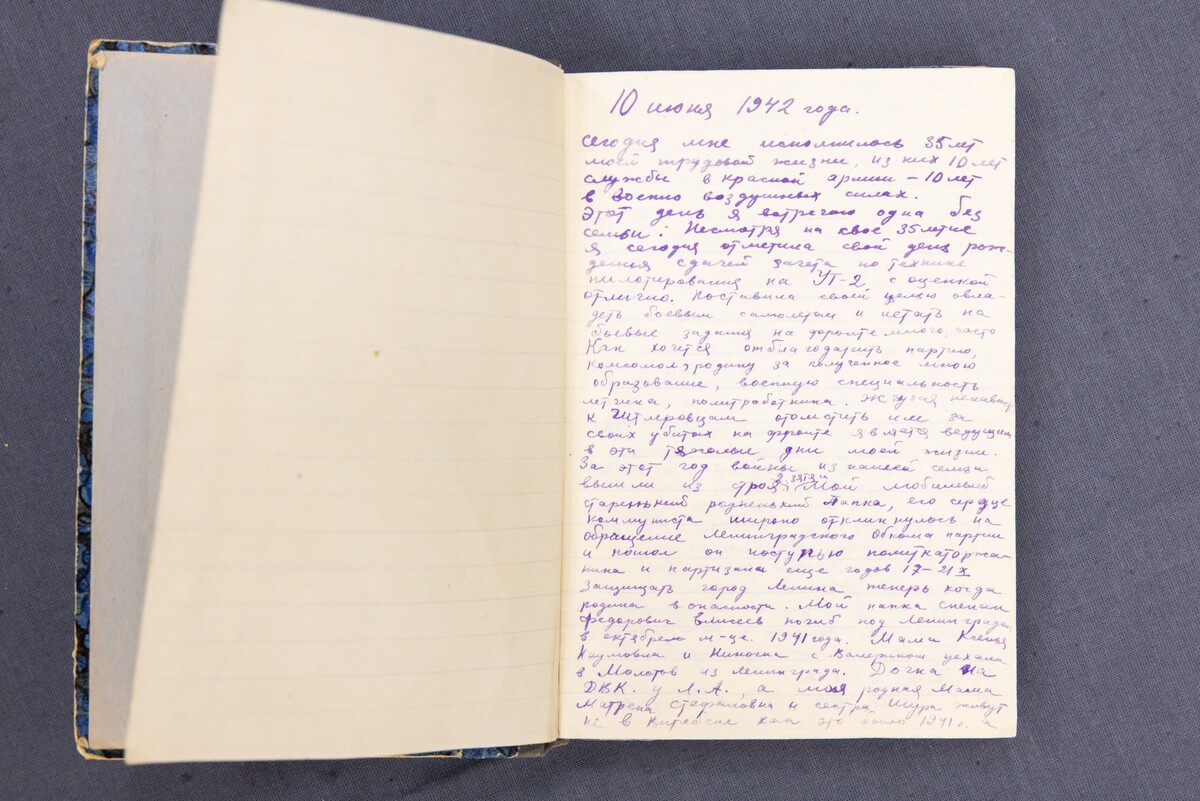 10 июня 1942 года.
Сегодня мне исполнилось 35 лет
моей трудовой жизни, из них 10 лет
службы в красной армии – 10 лет
в военно воздушных силах.
Этот день я встречаю одна без
семьи. Несмотря на свое 35летие
я сегодня отметила свой день рож-
дения сдачей зачета по технике
пилотирования на УТ-2 с оценкой
отлично. Поставила своей целью овла-
деть боевым самолетом и летать на
боевые задания на фронте много, часто
Как хочется отблагодарить партию,
комсомол, родину за полученное мною
образование, военную специальность
летчика, политработника. Жгучая ненависть
к Гитлеровцам отомстить им за
своих убитых на фронте является ведущим
в эти тяжелые дни моей жизни.
За этот год войны из нашей семьи
вышли из строя 2 зятя и мой любимый
старенький родненький Папка, его сердце
коммуниста широко откликнулось на
обращение Ленинградского Обкома партии
и пошел он поступью политкаторжа-
нина и партизана еще годов 17–21х
защищать город Ленина теперь когда
родина в опасности. Мой папка
Федорович погиб под Ленинградом
в октябре м-це. 1941 года. Мама Ксенья
Наумовна и Ниночка с уехали
в Молотов из Ленинграда. Дочка на
ДВК. у Л.А., а моя родная мама
Матрена Стефановна и сестра Шура живут
не в Витебске как это было 1941 г. а